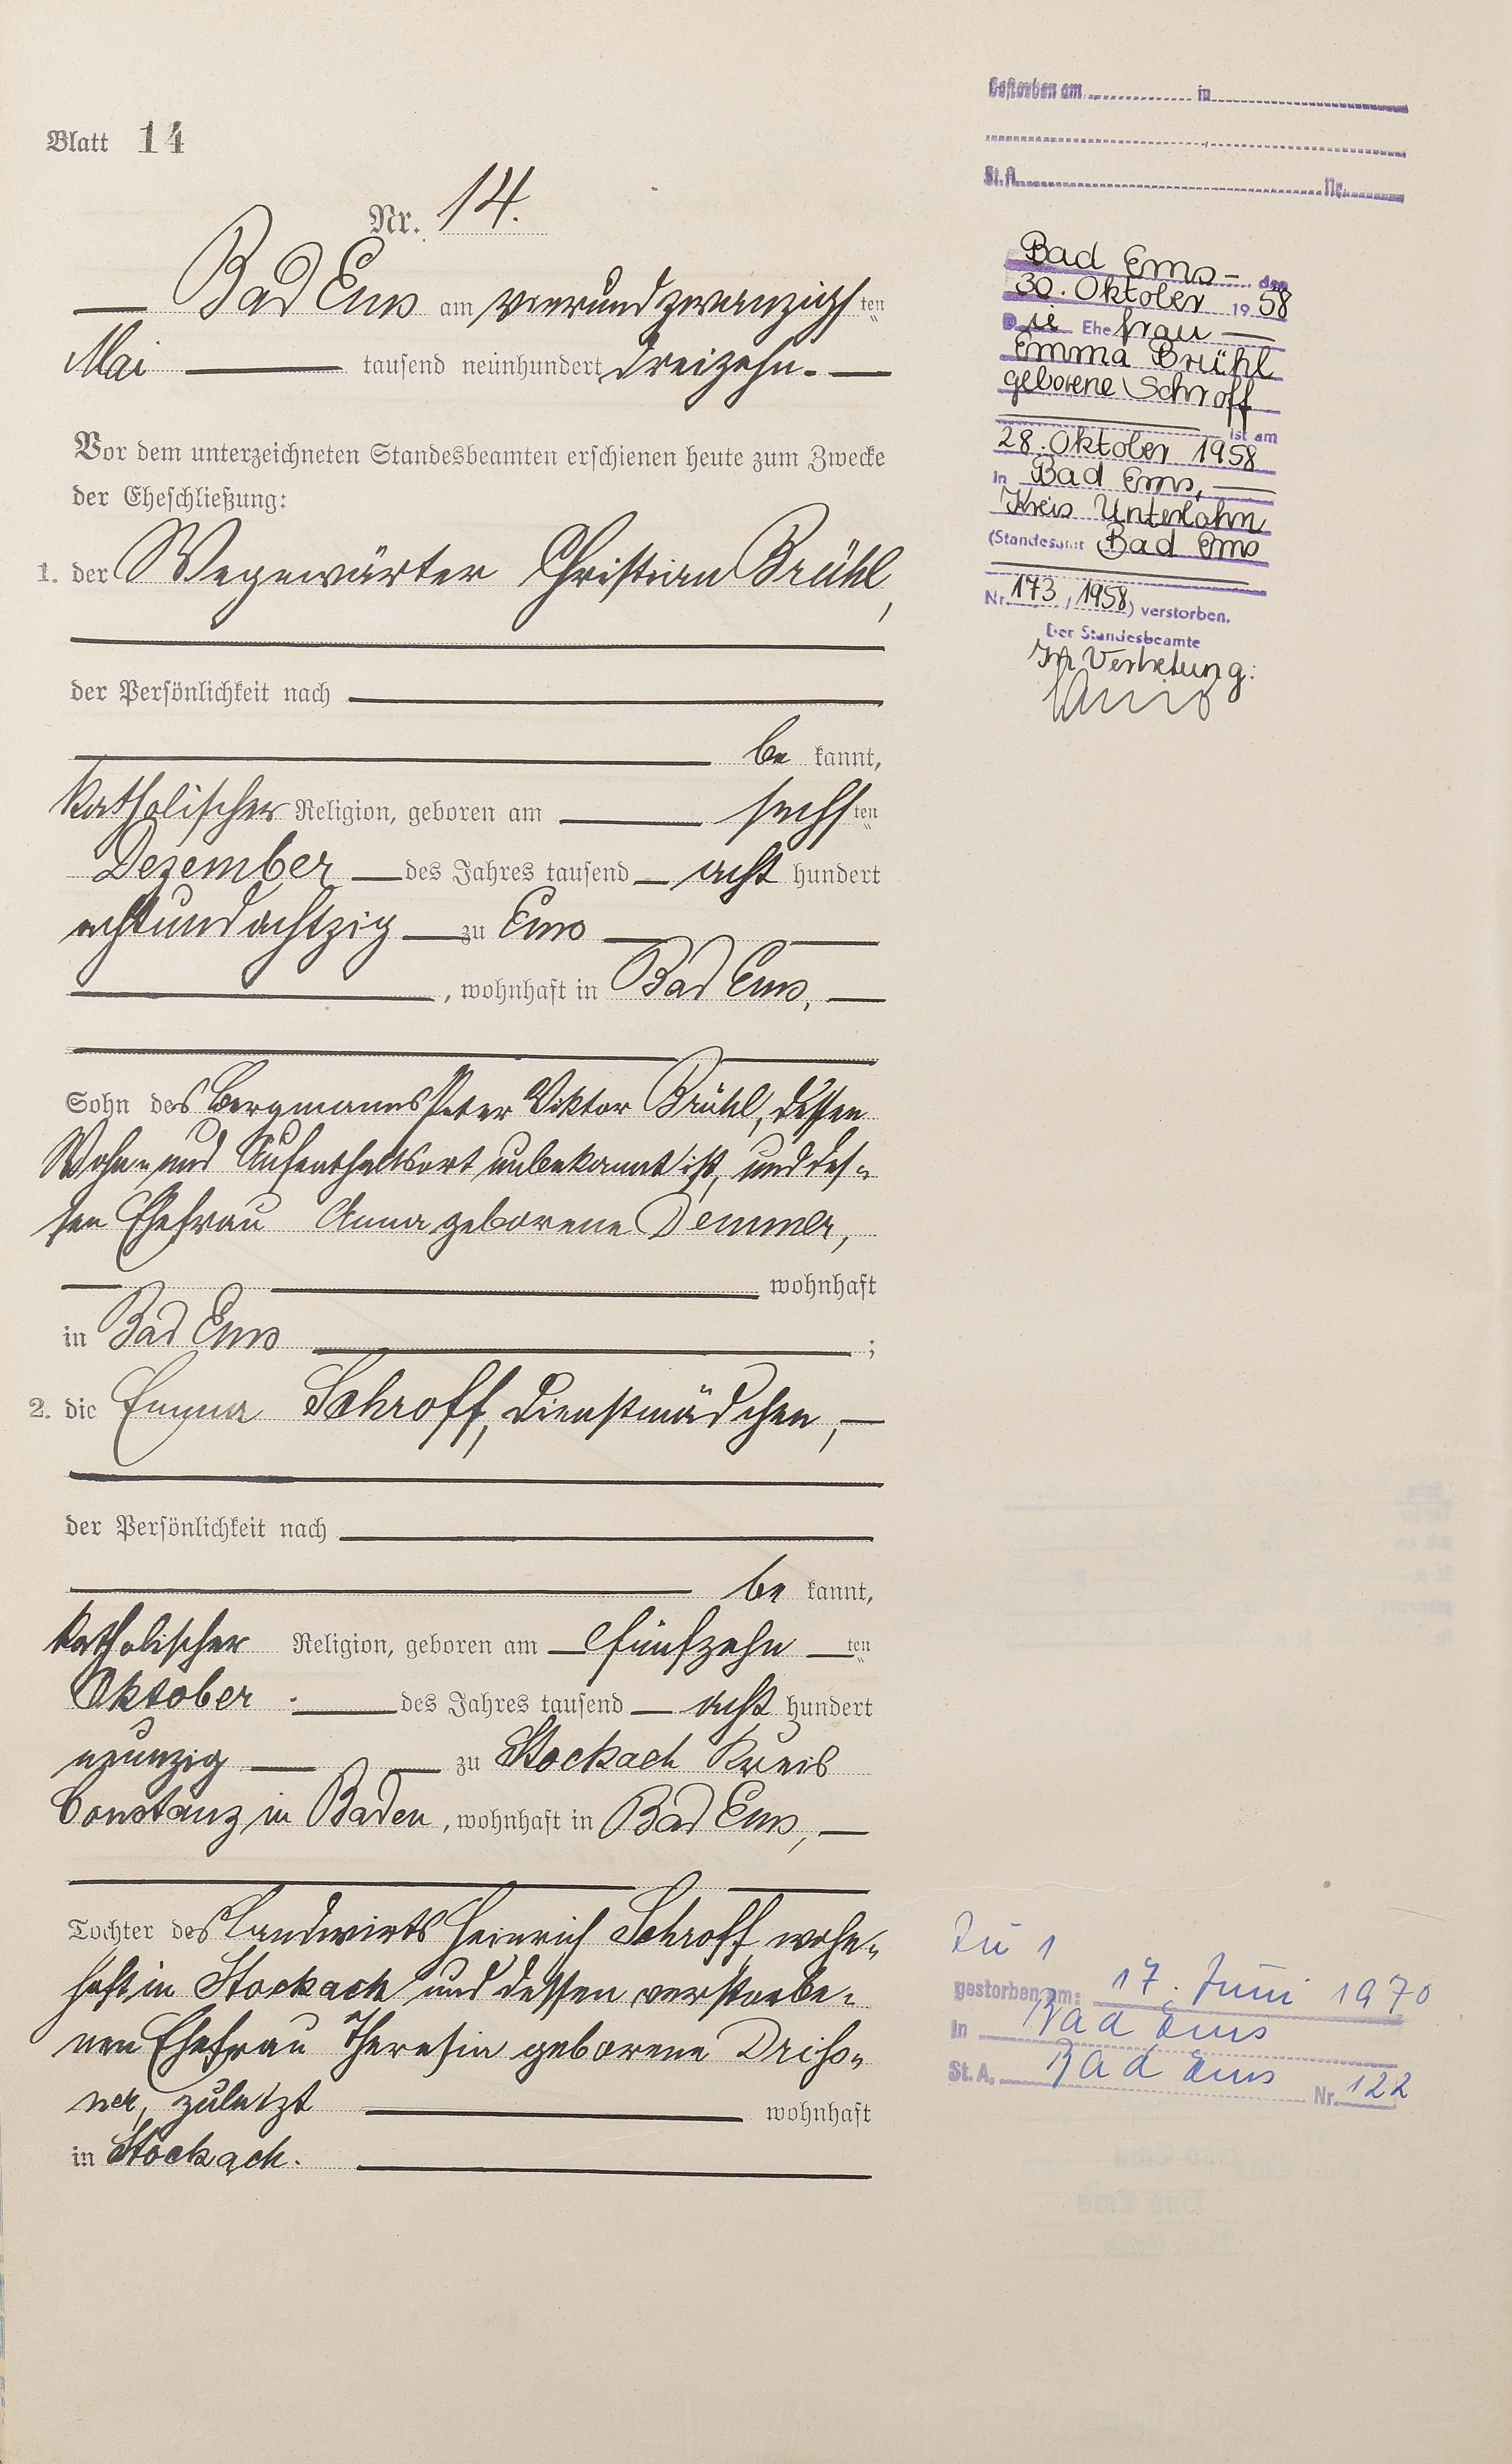 Blatt 14
Nr. 14.
Bad Ems am vierundzwanzigsten
Mai tausend neunhundert dreizehn.
Vor dem unterzeichneten Standesbeamten erschienen heute zum Zwecke
der Eheschließung:
1. der Wegewärter Christian Brühl,
der Persönlichkeit nach
be kannt,
katholischer Religion, geboren am sechsten
Dezember des Jahres tausend acht hundert
achtundachtzig zu Ems
, wohnhaft in Bad Ems,
Sohn des Bergmanns Peter Viktor Brühl, dessen
Wohn- und Aufenthaltsort unbekannt ist, und des-
sen Ehefrau Anna geborene Demmer,
wohnhaft
in Bad Ems ;
2. die Emma Schroff, Dienstmädchen,
der Persönlichkeit nach
be kannt,
katholischer Religion, geboren am fünfzehn ten
Oktober des Jahres tausend acht hundert
neunzig zu Stockach Kreis
Constanz in Baden, wohnhaft in Bad Ems,
Tochter des Landwirts Heinrich Schroff, wohn-
haft in Stockach und dessen verstorbe-
nen Ehefrau Theresia geborene Driß-
ner, zuletzt wohnhaft
in Stockach.
Gestorben am in
St.A. Nr.
Bad Ems - den
30. Oktober 1958
Die Ehefrau
Emma Brühl
geborene Schroff
ist am
28. Oktober 1958
in Bad Ems,
Kreis Unterlahn
(Standesamt Bad Ems
Nr. 173 / 1958) verstorben.
Der Standesbeamte
In Vertretung:
Zu 1
gestorben am: 17. Juni 1970
in Bad Ems
St. A. Bad Ems Nr. 122